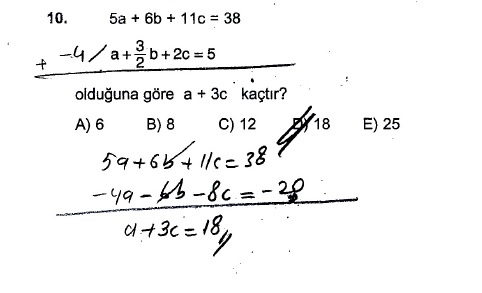 10. 5a + 6b + 11c = 38
+ -4/ a + 3/2 b + 2c = 5
olduğuna göre a + 3c kaçtır?
A) 6 B) 8 C) 12 D) 18 E) 25
5a + 6b + 11c = 38
-4a - 6b - 8c = -20
a + 3c = 18